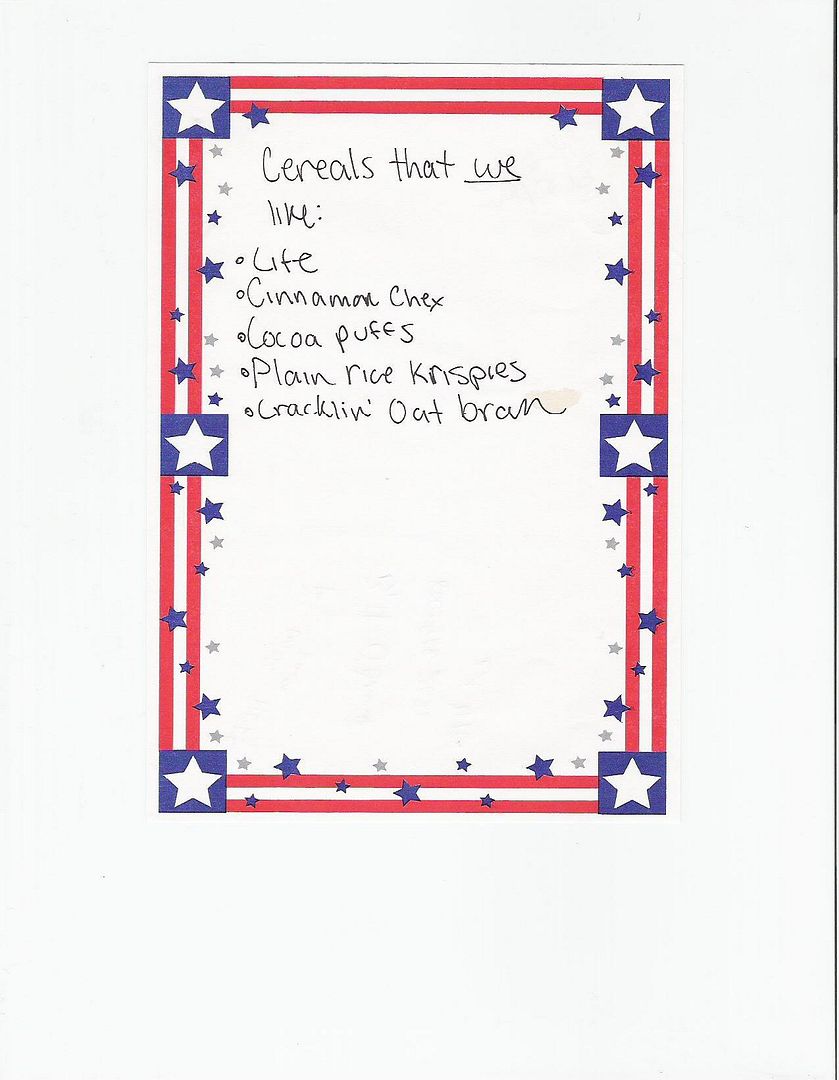 Cereals that we
like:
• Life
• Cinnamon Chex
• Cocoa puffs
• Plain rice krispies
• Cracklin' Oat bran